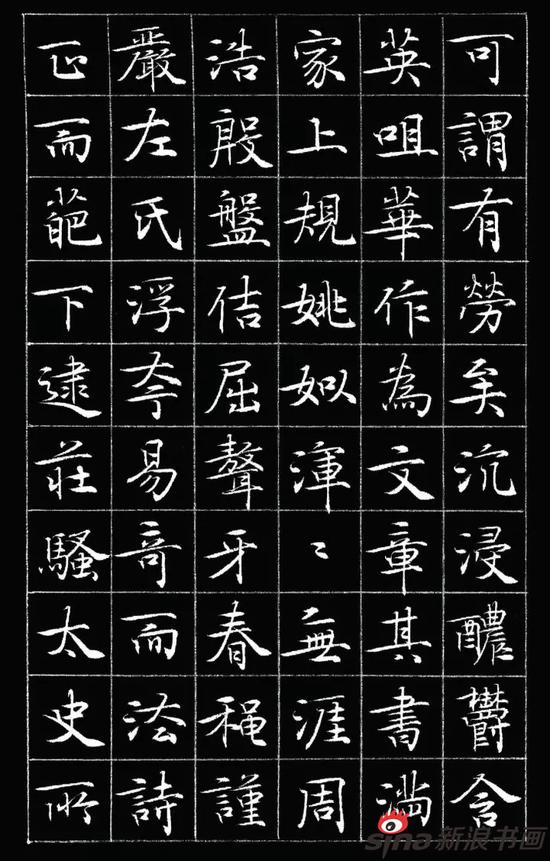 可謂有勞矣沉浸醲鬱含
英咀華作為文章其書滿
家上規姚姒渾〻無涯周
浩殷盤佶屈聱牙春穐謹
嚴左氏浮夸易奇而法詩
正而葩下逮莊騷太史所
sina新浪书画